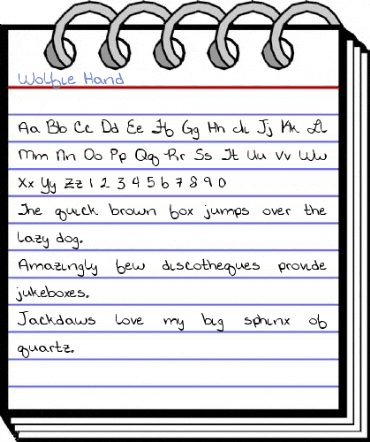 Wolfie Hand
Aa Bb Cc Dd Ee Ff Gg Hh Ii Jj Kk Ll
Mm Nn Oo Pp Qq Rr Ss Tt Uu Vv Ww
Xx Yy Zz 1 2 3 4 5 6 7 8 9 0
The quick brown fox jumps over the
lazy dog.
Amazingly few discotheques provide
jukeboxes.
Jackdaws love my big sphinx of
quartz.